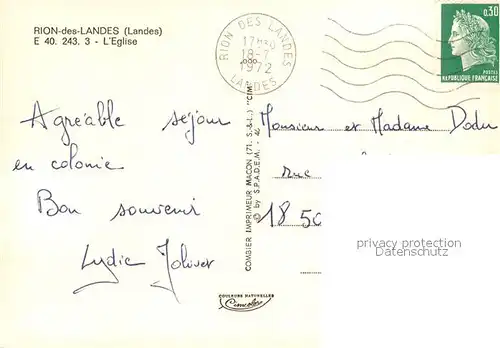 RION-des-LANDES (Landes)
E 40. 243. 3 - L'Eglise
RION DES LANDES
17H30
18-7
1972
LANDES
0,30
POSTES
REPUBLIQUE FRANÇAISE
Agréable séjour
en colonie
Bon souvenir
Lydie Joliver
COMBIER IMPRIMEUR MACON (71. S.-&-L.) "CIM"
© by S.P.A.D.E.M. -
Monsieur et Madame Dodu
rue
18 50
privacy protection
Datenschutz
COULEURS NATURELLES
Cimcolor